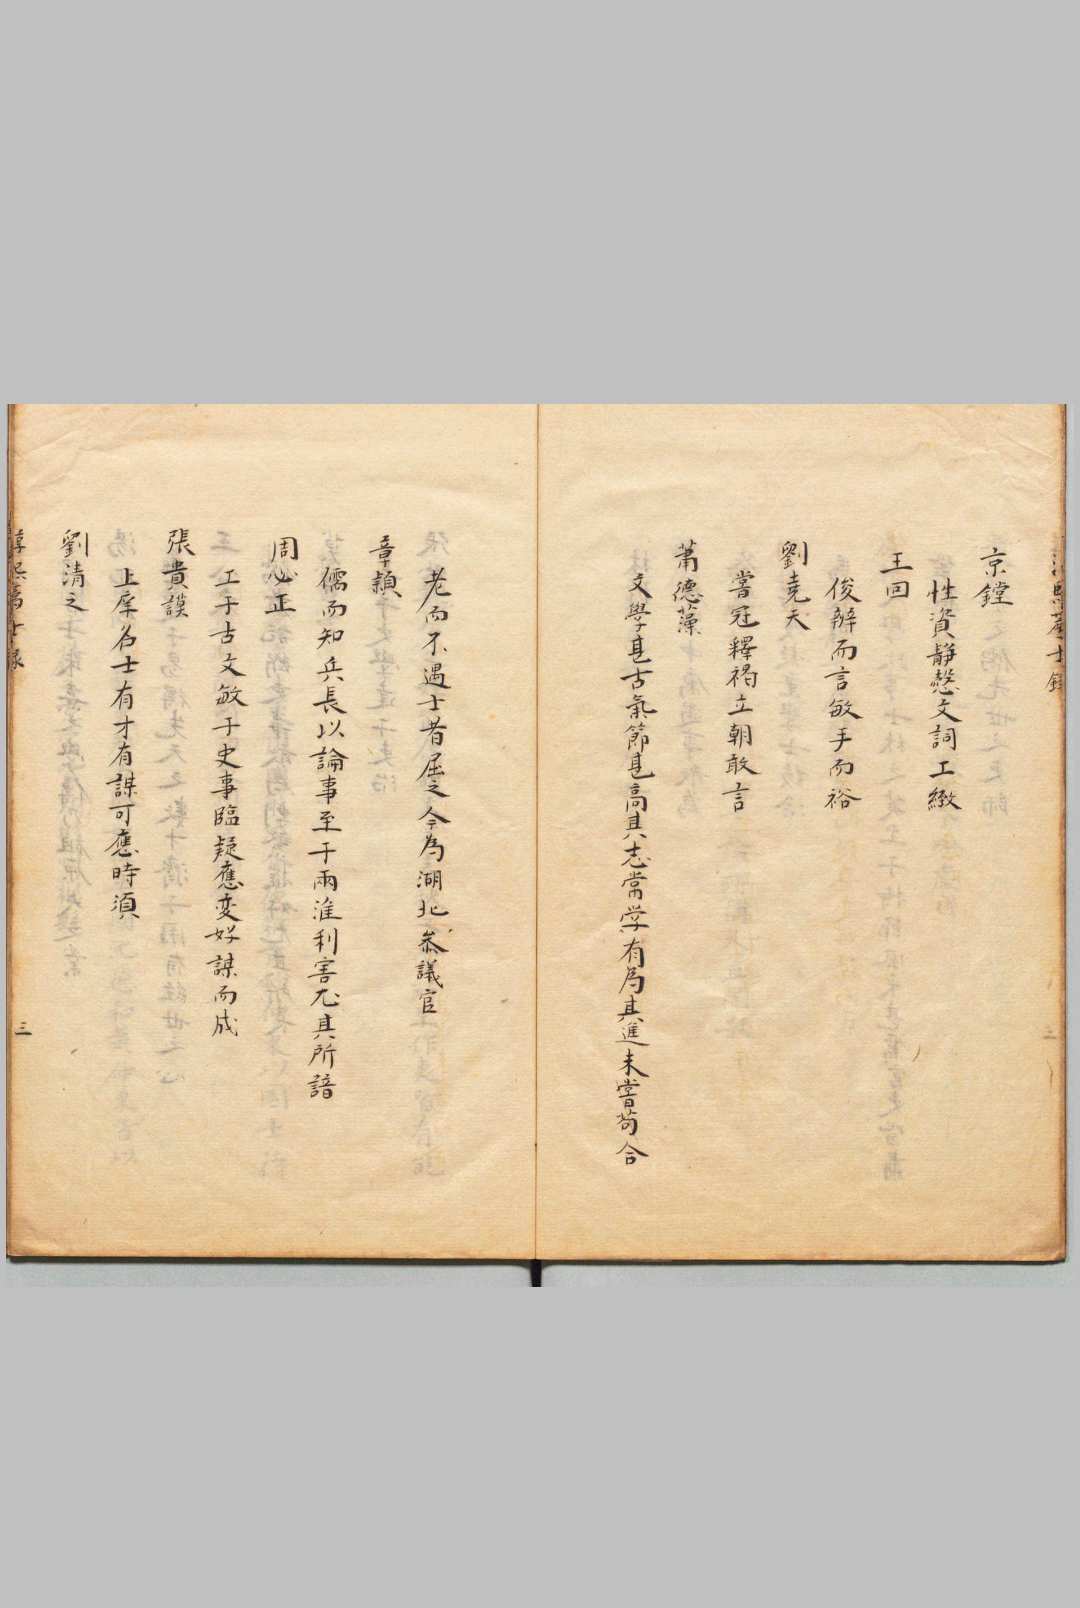 京鏜
性資靜慤文詞工緻
王回
俊辨而言敏手而裕
劉堯天
嘗冠釋褐立朝敢言
蕭德藻
文學甚古氣節甚高其志常学有為其進未嘗苟合
老而不遇士者屈之今為湖北叅議官
章頴
儒而知兵長以論事至于兩淮利害尤其所諳
周必正
工于古文敏于史事臨疑應变好謀而成
張貴謨
上庠名士有才有謀可應時須
劉清之
淳熙薦士录
三